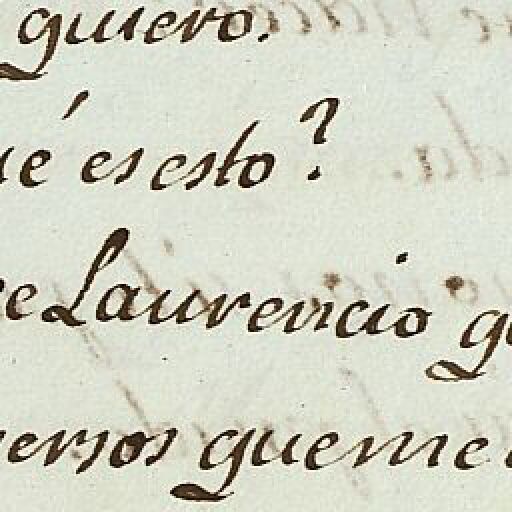 quiero.
ué es esto?
e Laurencio q
versos que me